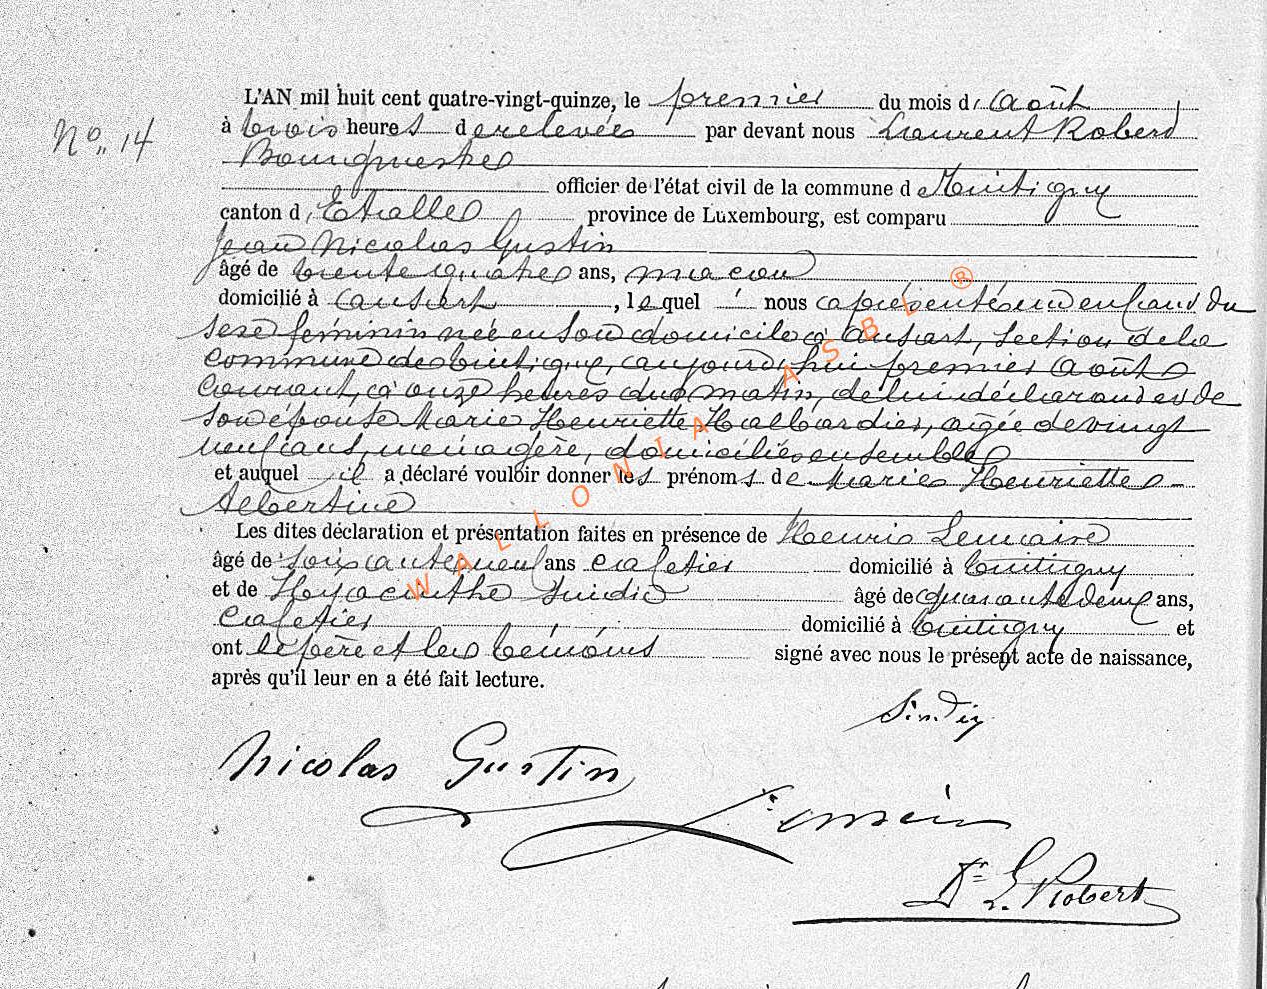 L'AN mil huit cent quatre-vingt-quinze, le premier du mois d'Août
No. 14
à trois heures de relevée par devant nous Laurent Robert
Bourgmestre
officier de l'état civil de la commune de Tintigny
canton d'Etalle province de Luxembourg, est comparu
Jean Nicolas Gustin
âgé de trente quatre ans, maçon
domicilié à Ansart, lequel nous a présenté un enfant du
sexe féminin née en son domicile à Ansart, section de la
commune de Tintigny, aujourd'hui premier Août
courant, à onze heures du matin, de lui déclarant et de
son épouse Marie Henriette Halbardier, agée de vingt
neuf ans, ménagère, domiciliés ensemble
et auquel il a déclaré vouloir donner les prénoms de Marie Henriette
Albertine
Les dites déclaration et présentation faites en présence de Henri Lemaire
âgé de soixante neuf ans cafetier domicilié à Tintigny
et de Hyacinthe Sindic âgé de quarante deux ans,
cafetier domicilié à Tintigny et
ont le père et les témoins signé avec nous le présent acte de naissance,
après qu'il leur en a été fait lecture.
Sindic
Nicolas Gustin
Dr L. Robert
WALLONIA ASBL ®